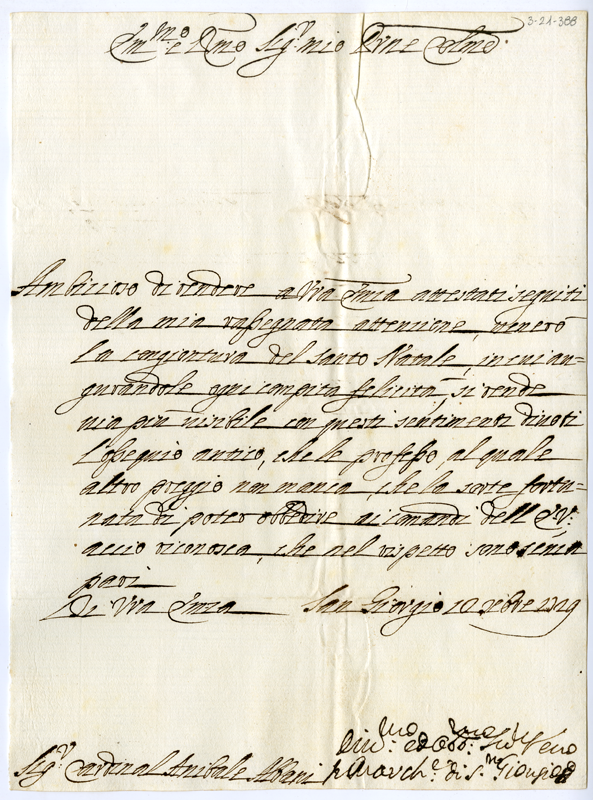 3-21-388
Em.mo e R.mo Sig.r mio P̃rne Colmo.
Ambizioso di rendere a Vra Emza attestati seguiti
della mia rassegnata attenzione, venero
la congiontura del Santo Natale, in cui au=
gurandole ogni compita felicità, si rende
mia più visibile con questi sentimenti divoti
l'ossequio antico, che le professo, al quale
altro preggio non manca, che la sorte fortu=
nata di poter obbedire ai comandi dell' E.V.
acciò riconosca, che nel rispetto sono senza
pari
Di Vra Emza San Giorgio 10 Xbre 1719
Div.mo ed Obb.mo Ser.
Sig.r Cardinal Anibale Albani March.e di S. Giorgio